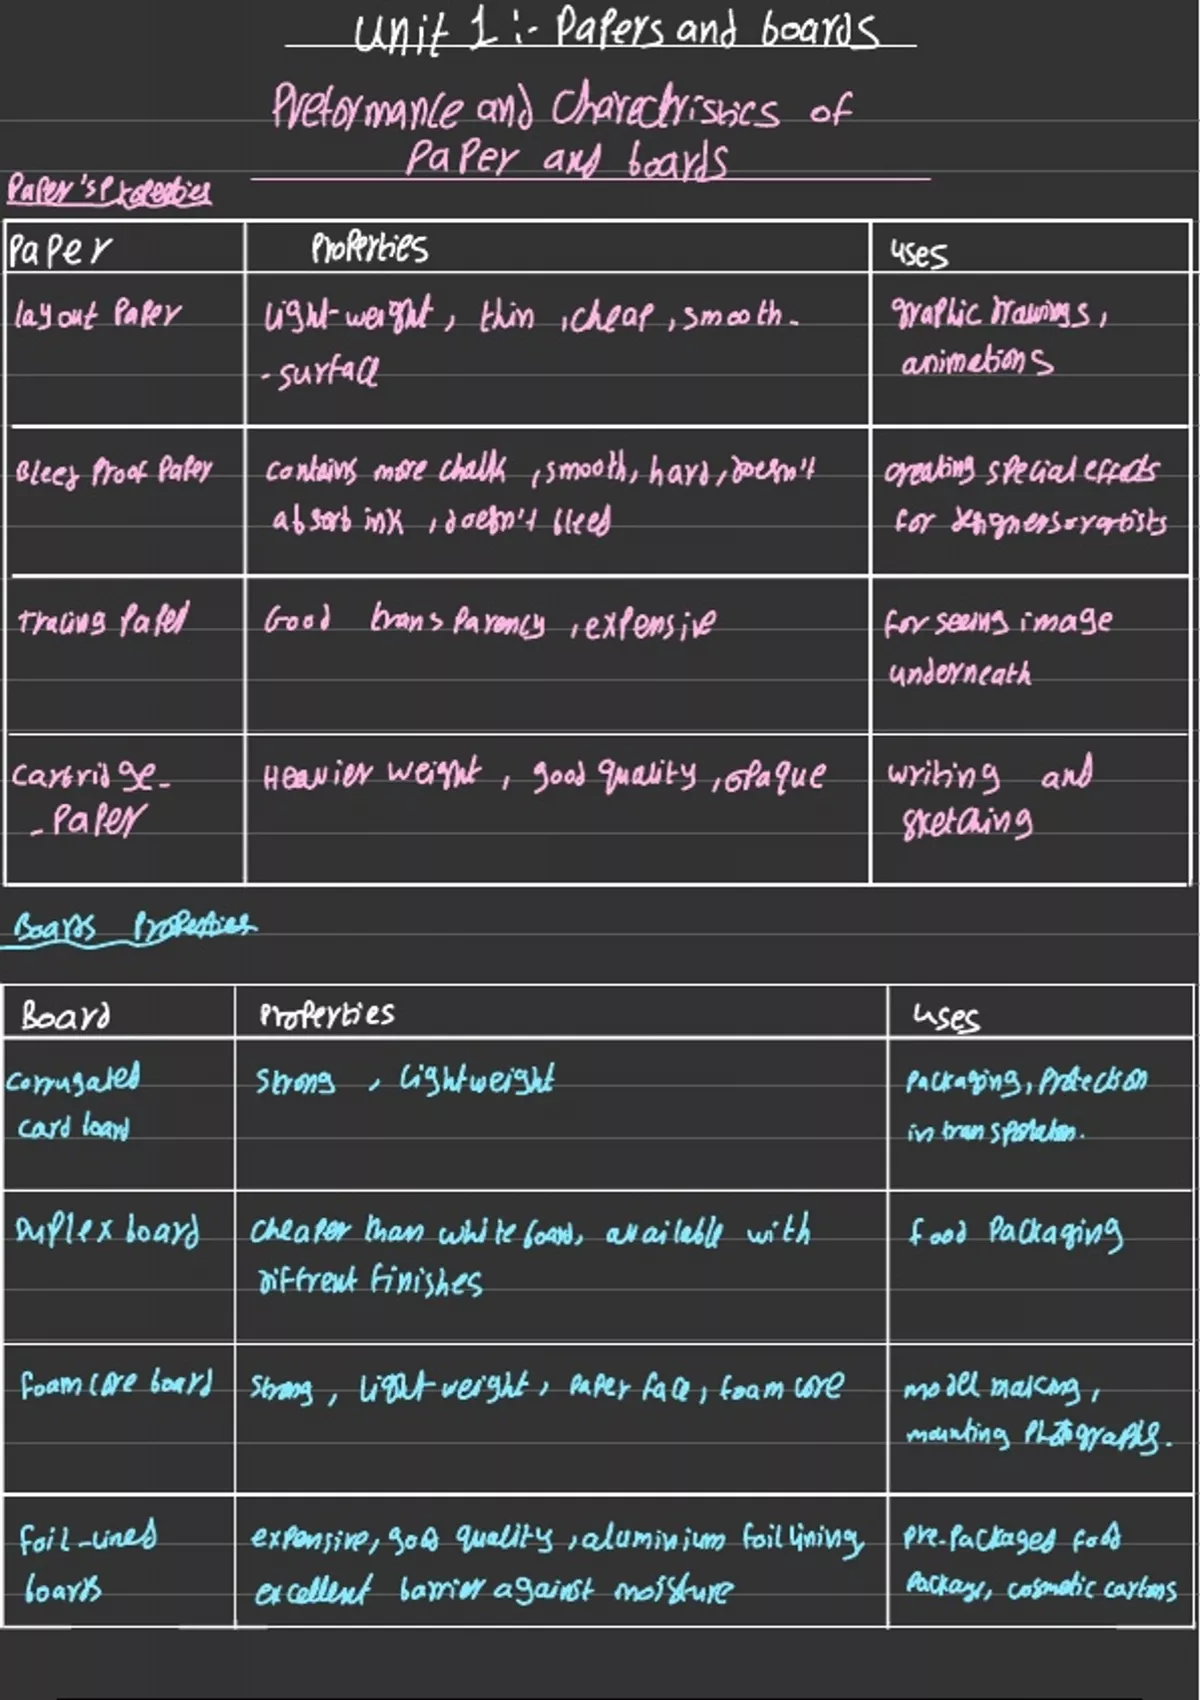 Unit 1 :- Papers and boards
Preformance and Charectristics of
Paper and boards
Paper's Properties
Paper Properties uses
layout Paper Light-weight, thin, cheap, smooth- graphic drawings,
-surface animations
Bleed Proof Paper contains more chalk, smooth, hard, doesn't creating special effects
absorb ink, doesn't bleed for designers or artists
Tracing Paper Good transparency, expensive for seeing image
underneath
Cartridge- Heavier weight, good quality, opaque writing and
-Paper sketching
Boards Properties
Board Properties uses
corrugated strong, lightweight Packaging, Protection
card board in transportation.
Duplex board cheaper than white board, available with food Packaging
diffrent finishes
foam core board strong, lightweight, paper face, foam core model making,
mounting Photographs.
foil-lined expensive, good quality, aluminium foil lining, pre-Packaged food
boards excellent barrier against moisture Package, cosmetic cartons